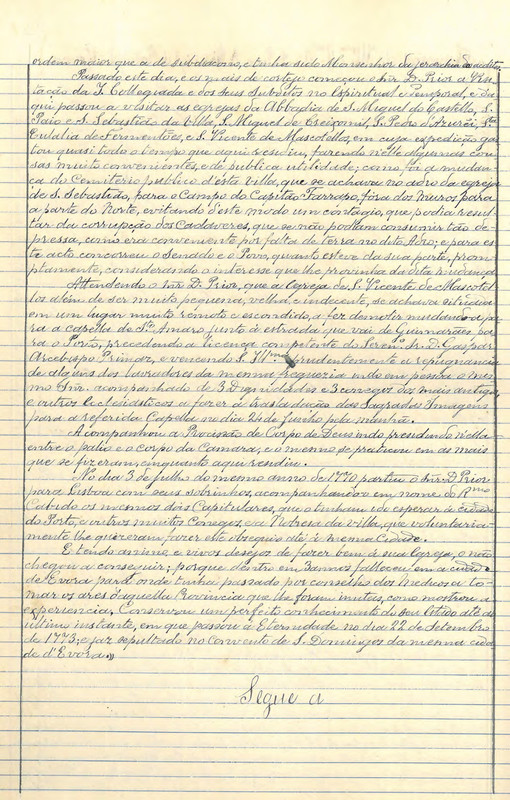 ordem maior que a de subdiacono, e tinha sido Monsenhor da jerarchia
Passado este dia, e os mais de cortejo começou o Snr. D. Prior a Visi-
tação da I. Collegiada e dos seus Subditos no Espiritual e temporal, e da-
qui passou a visitar as egrejas da Abbadia de S. Miguel do Castello, S.
Paio e S. Sebastião da Villa, S. Miguel de Creixomil, S. Pedro d'Azurêi, Sta.
Eulalia de Fermentões, e S. Vicente de Mascotellos, em cuja expedição gas-
tou quasi todo o tempo que aqui residiu, fazendo n'elle algumas cou-
sas muito convenientes, e de publica utilidade; como foi a mudan-
ça do Comiterio publico d'esta villa, que se achava no adro da egreja
de S. Sebastião, para o Campo do Capitão Farrapo, fóra dos muros para
a parte do Norte, evitando d'este modo um contagio, que podia resul-
tar da corrupção dos Cadaveres, que se não podiam consumir tão de-
pressa, como era conveniente por falta de terra no dito Adro; e para es-
te acto concorreu o Senado e o Povo, quanto esteve da sua parte, prom-
ptamente, considerando o interesse que lhe provinha da dita mudança.
Attendendo o Snr D. Prior, que a Egreja de S. Vicente de Mascotel-
los alem de ser muito pequena, velha, e indecente, se achava situada
em um lugar muito remoto e escondido, a fez demolir mudando-a pa-
ra a capella de Sto. Amaro junto à estrada que vai de Guimarães pa-
ra o Porto, precedendo a licença competente do Serenº. Snr. D. Gaspar
Arcebispo Primaz, e vencendo S. Illmª. prudentemente a repugnancia
de alguns dos lavradores da mesma freguezia indo em pessoa o mes-
mo Snr. acompanhado de 3 Dignidades e 3 conegos dos mais antigos,
e outros Ecclesiasticos a fazer a trasladação das Sagradas Imagens
para a referida Capella no dia 24 de junho pela manhã.
Acompanhou a Procissão de Corpo de Deus indo presidindo n'ella
entre o palio e o corpo da Camara, e o mesmo se praticou em as mais
que se fizeram, emquanto aqui residiu.
No dia 3 de julho do mesmo anno de 1770 partiu o Snr. D. Prior
para Lisboa com seus sobrinhos, acompanhando-o em nome do Rmo
Cabido os mesmos dois Capitulares, que o tinham ido esperar á cidade
do Porto, e outros muitos Conegos, e a Nobresa da villa, que voluntaria-
mente lhe quizeram fazer este obsequio até á mesma Cidade.
E tendo animo e vivos desejos de fazer bem á sua Egreja, o não
chegou a conseguir; porque dentro em 3 annos falleceu em a cidade
de Evora para onde tinha passado por conselho dos Medicos a to-
mar os ares d'aquella Provincia que lhe foram inuteis, como mostrou a
experiencia. Conservou um perfeito conhecimento do seu estado até ao
ultimo instante, em que passou á Eternidade no dia 22 de Setembro
de 1773; e jaz sepultado no Convento de S. Domingos da mesma cida-
de d'Evora.»
Segue a